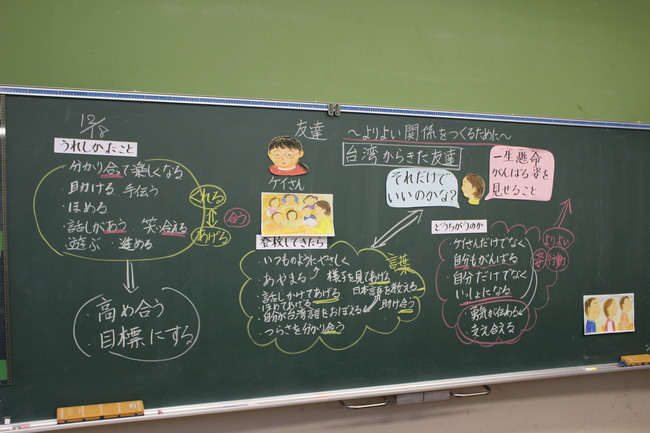 12/18
友達 ～よりよい関係をつくるために～
台湾からきた友達
うれしかったこと
・分かり合って楽しくなる
・助ける 手伝う
・ほめる
・話しかあう 笑い合える
・遊ぶ ・進める
くれる
あげる
合う
高め合う
目標にする
ケイさん
登校してきたら
・いつものようにやさしく
・あやまる 様子を見てあげる
・話しかけてあげる 日本語を教える
・ほめてあげる
・自分が台湾語をおぼえる 助け合う
・つらさを分かり合う
言葉
それだけで
いいのかな?
一生懸命
がんばる姿を
見せること
どうちがうのか
・ケイさんだけでなく
自分もがんばる
・自分だけでなく
いっしょになる
・勇気が伝わる
・支え合える
よりよい
姿 行動